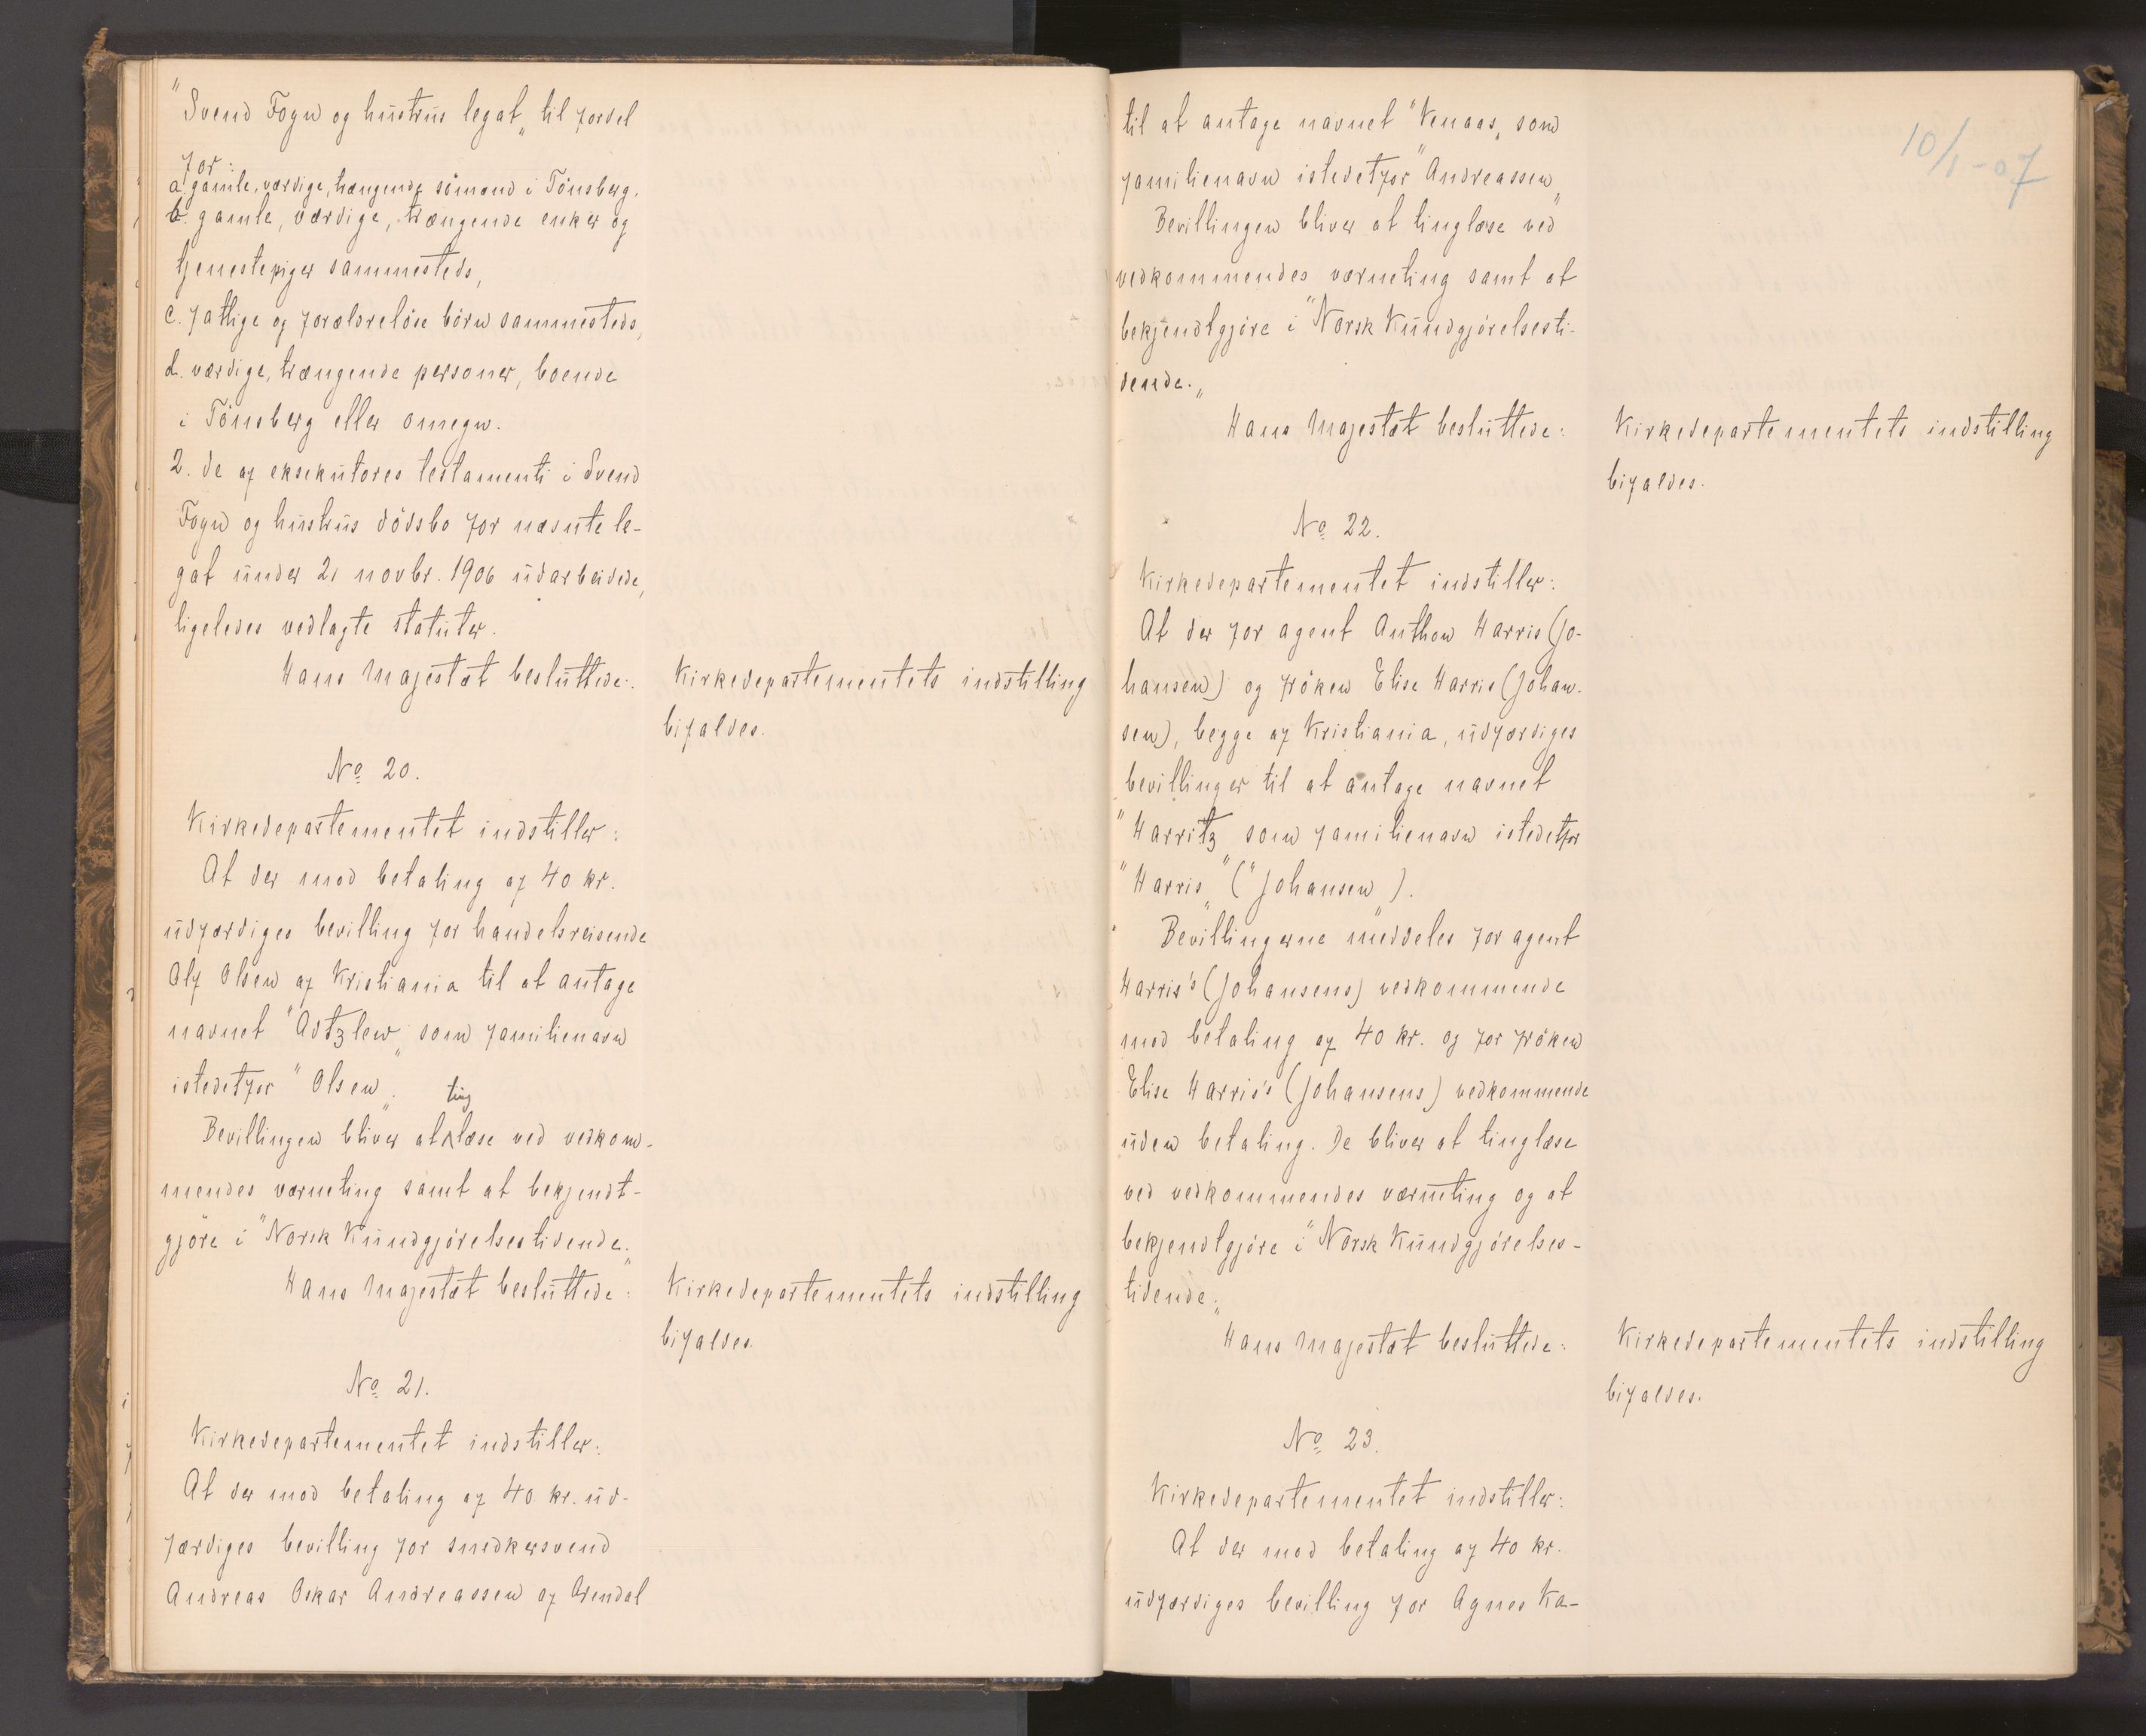 "Svend Foyn og hustrus legat" til fordel
for:
a. gamle, værdige, trængende sömænd i Tönsberg.
b. gamle, værdige, trængende enker og
tjenestepiger sammesteds,
c. fattige og forældrelöse börn sammesteds,
d. værdige, trængende personer, boende
i Tönsberg eller omegn.
2. de af eksekutores testamenti i Svend
Foyn og hustrus dödsbo for nævnte le-
gat under 21 novbr. 1906 udarbeidede,
ligeledes vedlagte statuter.
Hans Majestæt besluttede:
Kirkedepartementets indstilling
bifaldes.
No 20.
Kirkedepartementet indstiller:
At der mod betaling af 40 kr.
udfærdiges bevilling for handelsreisende
Alf Olsen af Kristiania til at antage
navnet "Astzlew" som familienavn
istedetfor "Olsen".
Bevillingen bliver at tinglæse ved vedkom-
mendes værneting samt at bekjendt-
gjöre i "Norsk Kundgjörelsestidende."
Hans Majestæt besluttede:
Kirkedepartementets indstilling
bifaldes.
No 21.
Kirkedepartementet indstiller:
At der mod betaling af 40 kr. ud-
færdiges bevilling for snedkersvend
Andreas Oskar Andreassen af Arendal
10/1-07
til at antage navnet "Venaas" som
familienavn istedetfor "Andreassen"
Bevillingen bliver at tinglæse ved
vedkommendes værneting samt at
bekjendtgjöre i "Norsk Kundgjörelsesti-
dende."
Hans Majestæt besluttede:
Kirkedepartementets indstilling
bifaldes.
No 22.
Kirkedepartementet indstiller:
At der for agent Anthon Harris (Jo-
hansen) og fröken Elise Harris (Johan-
sen), begge af Kristiania, udfærdiges
bevillinger til at antage navnet
"Harritz" som familienavn istedetfor
"Harris" ("Johansen").
Bevillingerne meddeles for agent
Harris's (Johansens) vedkommende
mod betaling af 40 kr. og for fröken
Elise Harris's (Johansens) vedkommende
uden betaling. De bliver at tinglæse
ved vedkommendes værneting og at
bekjendtgjöre i "Norsk Kundgjörelses-
tidende."
Hans Majestæt besluttede:
Kirkedepartementets indstilling
bifaldes.
No 23.
Kirkedepartementet indstiller:
At der mod betaling af 40 kr.
udfærdiges bevilling for Agnes Ka-